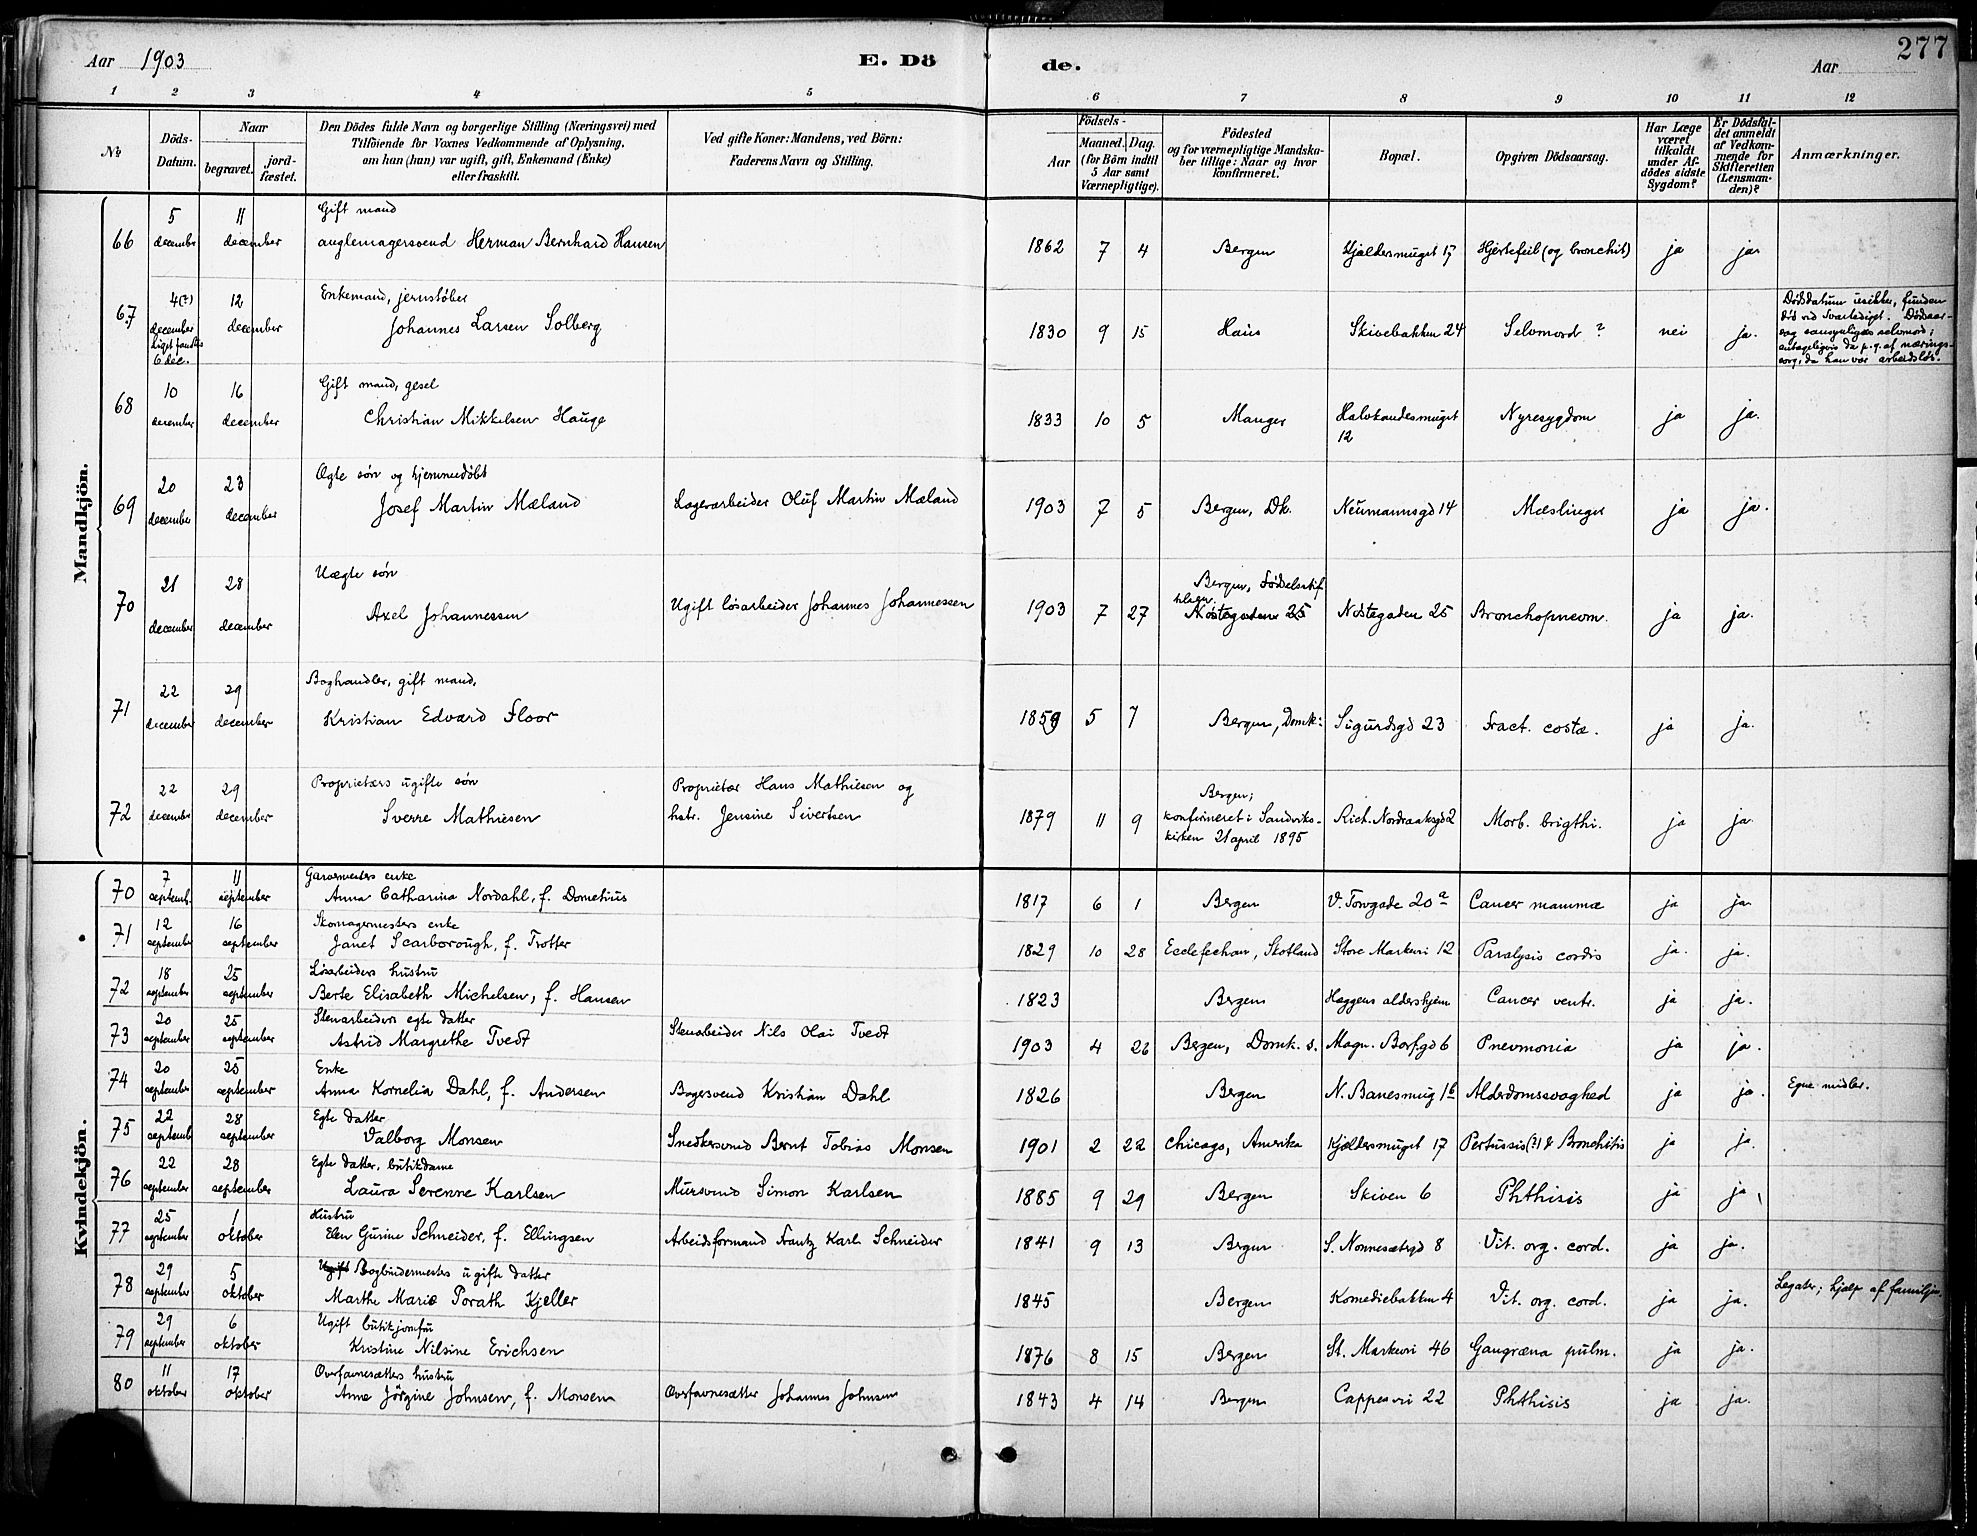 Aar 1903 E. Dö de. Aar 277
1 2 3 4 5 6 7 8 9 10 11 12
№ Döds-Datum. Naar begravet. jord-fæstet. Den Dödes fulde Navn og borgerlige Stilling (Næringsvei) med Tilföiende for Voxnes Vedkommende af Oplysning, om han (hun) var ugift, gift, Enkemand (Enke) eller fraskilt. Ved gifte Koner: Mandens, ved Börn: Faderens Navn og Stilling. Födsels- Aar Maaned. Dag. (for Börn indtil 5 Aar samt Værnepligtige). Födested og for værnepligtige Mandska-ber tillige: Naar og hvor konfirmeret. Bopæl. Opgiven Dödsaarsag. Har Læge været tilkaldt under Af-dödes sidste Sygdom? Er Dödsfal-det anmeldt af Vedkom-mende for Skifteretten (Lensman-den)? Anmærkninger.
Mandkjön.
66 5 december 11 december Gift mand
anglemagersvend Herman Bernhard Hansen 1862 7 4 Bergen Kjeldersmuget 17 Hjertefeil (og bronchit) ja ja
67 4(?) december Liget fandtes 6 dec. 12 december Enkemand, jernstøber
Johannes Larsen Solberg 1830 9 15 Haus Skivebakken 24 Selvmord ? nei ja.
Dødsdatum usikker, funden
død ved Svartediget. Dødsaar-
sag sansynligvis selvmord;
antageligvis da p. g. af nærings-
sorg, da han var arbeidsløs.
68 10 december 16 december Gift mand, gesel
Christian Mikkelsen Hauge 1833 10 5 Manger Halvkandesmuget 12 Nyresygdom ja ja.
69 20 december 23 december Ægte søn og hjemmedøbt
Josef Martin Mæland Lagerarbeider Oluf Martin Mæland 1903 7 5 Bergen, Dk. Neumannsgd 14 Mæslinger ja ja.
70 21 december 28 december Uægte søn
Axel Johannessen Ugift løsarbeider Johannes Johannessen 1903 7 27 Bergen, Fødselsstif
telsen. Nøstegaden 25 Nøstegaden 25 Bronchopneum. ja ja.
71 22 december 29 december Boghandler, gift mand,
Kristian Edvard Floor 1859 5 7 Bergen, Domk: Sigurdsgd 23 Fract. costæ. ja ja.
72 22 december 29 december Proprietærs ugifte søn
Sverre Mathiesen Proprietær Hans Mathiesen og
hstr. Jensine Sivertsen 1879 11 9 Bergen;
konfirmeret i Sandviks-
kirken 21 april 1895 Rich. Nordraaksgd 2 Morb. brigthi. ja ja.
Kvindekjön.
70 7 septemb. 11 september Garvermesters enke
Anna Catharina Nordahl, f. Dometius 1817 6 1 Bergen V. Torvgade 20 a Cancer mammæ ja ja
71 12 september 16 september Skomagermesters enke
Janet Scarborough, f. Trotter 1829 10 28 Ecclefechan, Skotland Store Markvei 12 Paralysis cordis ja. ja.
72 18 september 25 september Løsarbeiders hustru
Berte Elisabeth Michelsen, f. Hansen 1823 Bergen Haggens aldershjem Cancer ventr. ja ja.
73 20 september 25 september Stenarbeiders egte datter
Astrid Margrethe Tvedt Stenarbeider Nils Olai Tvedt 1903 4 26 Bergen, Domk. s. Magn. Barf.gd 6 Pnevmonia ja ja.
74 20 september 25 september Enke
Anna Kornelia Dahl, f. Andersen Bagersvend Kristian Dahl 1826 Bergen N. Banesmug 1 b Alderdomssvaghed ja ja. Egne midler.
75 22 septemb 28 september Egte datter
Valborg Monsen Snedkersvend Bernt Tobias Monsen 1901 2 22 Chicago, Amerika Kjeldersmuget 17 Pertussis (?) & Bronchitis ja ja.
76 22 september 28 september Egte datter, butikdame
Laura Serenne Karlsen Mursvend Simon Karlsen 1885 9 29 Bergen Skiven 6 Phthisis ja ja
77 25 september 1 oktober Hustru
Elen Gurine Schneider, f. Ellingsen Arbeidsformand Frantz Karl Schneider 1841 9 13 Bergen S. Nonnesætergd 8 Vit. org. cord. ja ja.
78 29 september 5 oktober Ugift Bogbindermesters ugifte datter
Marthe Marie Porath Kjeller 1845 Bergen Komediebakken 4 Vit. org. cord. ja ja. Legater; hjælp af familjen.
79 29 september 6 oktober Ugift butikjomfru
Kristine Nilsine Erichsen 1876 8 15 Bergen St. Markevei 46 Gangræna pulm. ja ja.
80 11 oktober 17 oktober Overfavnesætters hustru
Anne Jörgine Johnsen, f. Monsen Overfavnesætter Johannes Johnsen 1843 4 14 Bergen Cappesvei 22 Phthisis ja ja.